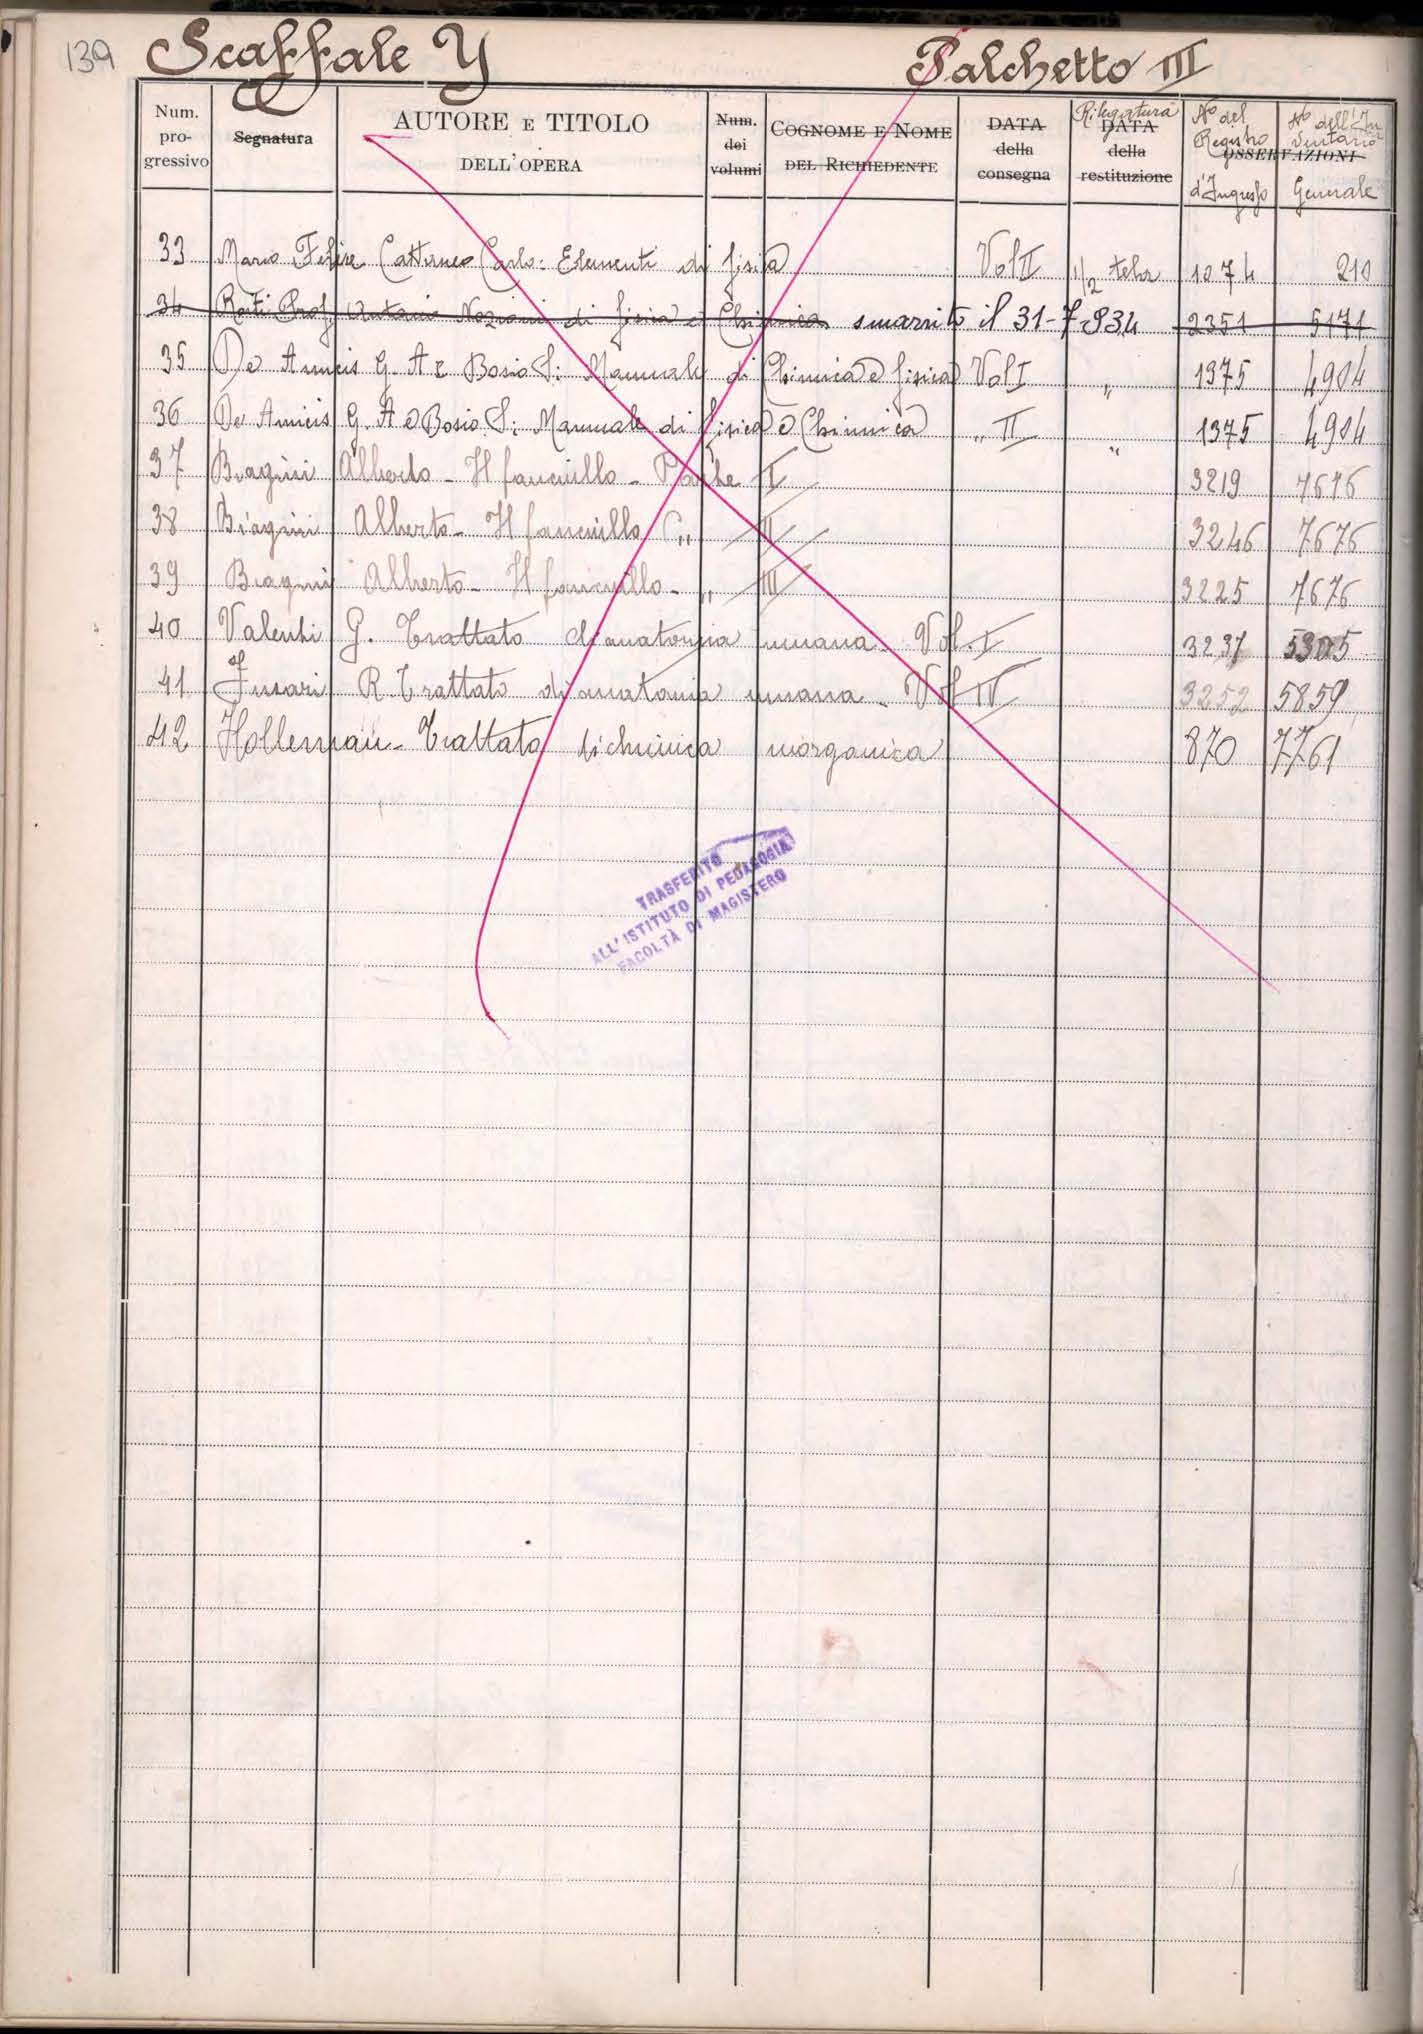 139 Scaffale Y Palchetto III
Num. progressivo Segnatura AUTORE E TITOLO DELL'OPERA Num. dei volumi COGNOME E NOME DEL RICHIEDENTE DATA della consegna Rilegatura DATA della restituzione Nº del Registro d'Ingresso Nº dell'Inventario OSSERVAZIONI Generale
33 Mario Felice Cattaneo Carlo: Elementi di fisica Vol II 1/2 tela 1074 210
34 Roiti Prof. Antonio Nozioni di fisica e Chimica smarrito il 31-7-934 2351 5171
35 De Amicis G. A e Bosio S: Manuale di Chimica e fisica Vol I " 1375 4904
36 De Amicis G. A e Bosio S: Manuale di fisica e Chimica " II " 1375 4904
37 Biagini Alberto - Il fanciullo - Parte I 3219 7676
38 Biagini Alberto - Il fanciullo " II 3246 7676
39 Biagini Alberto - Il fanciullo - " III 3225 7676
40 Valenti G. Trattato di anatomia umana. Vol. I 3237
41 Fusari R. Trattato di anatomia umana - Vol IV 3252 5859
42 Holleman - Trattato di chimica inorganica 870 7761
TRASFERITO
ALL'ISTITUTO DI PEDAGOGIA
FACOLTÀ DI MAGISTERO